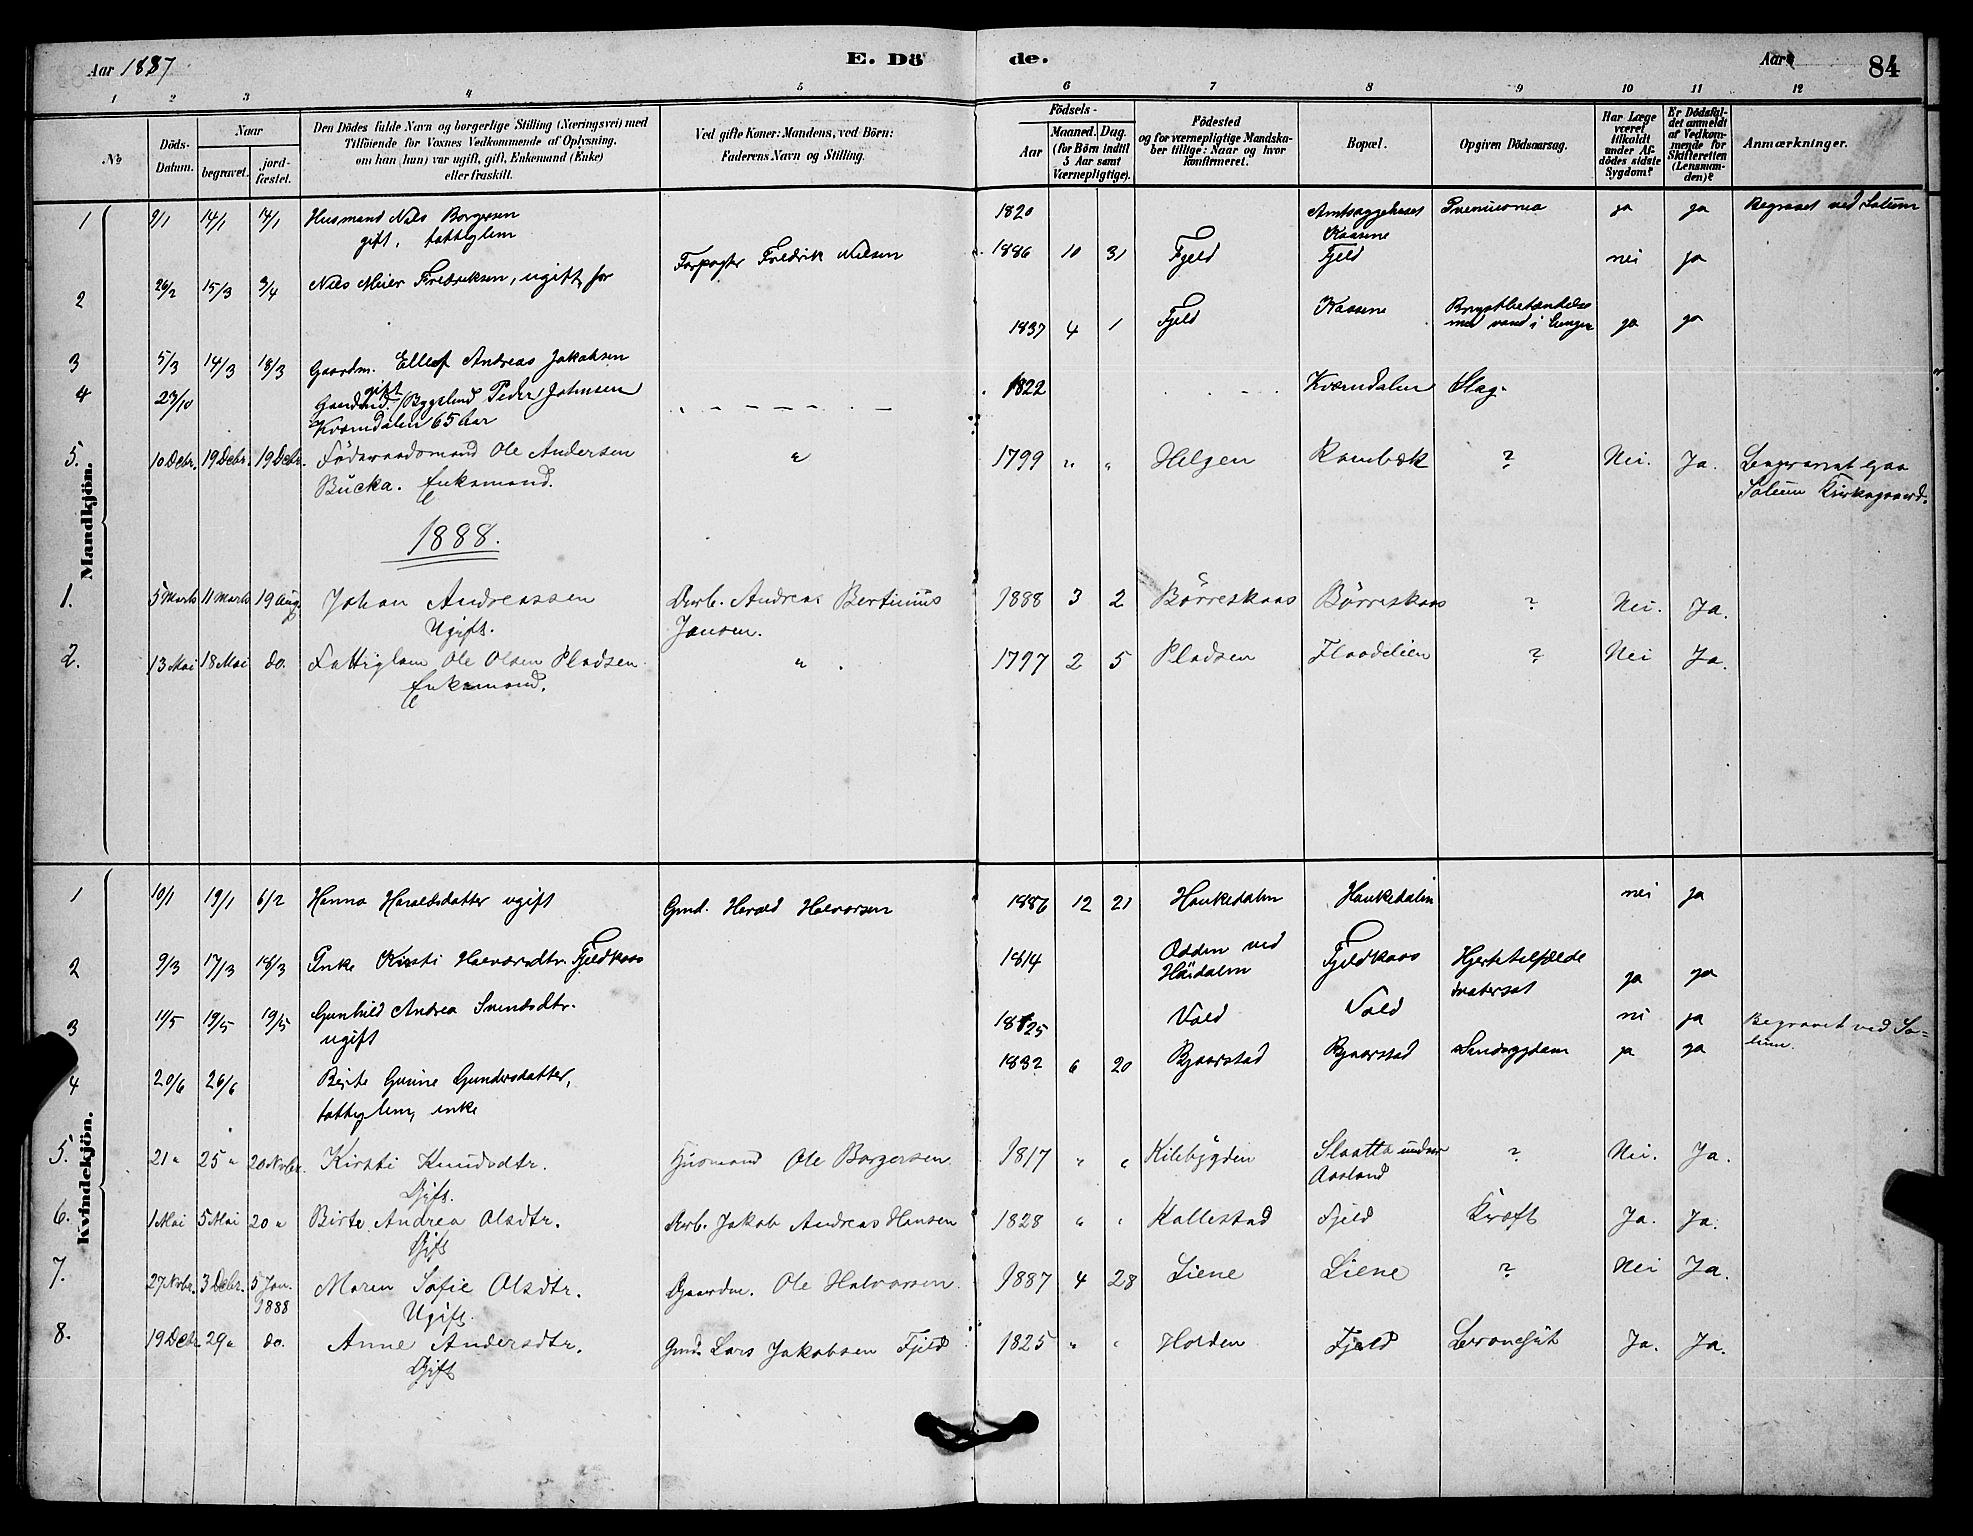 Aar 1887
E. Dö
de.
Aar
84
1 2 3 4 5 6 7 8 9 10 11 12
No
Döds-
Datum.
Naar
begravet.
jord-
fæstet.
Den Dödes fulde Navn og borgerlige Stilling (Næringsvei) med
Tilföiende for Voxnes Vedkommende af Oplysning,
om han (hun) var ugift, gift, Enkemand (Enke)
eller fraskilt.
Ved gifte Koner: Mandens, ved Börn:
Faderens Navn og Stilling.
Födsels-
Aar
Maaned. Dag.
(for Börn indtil
5 Aar samt
Værnepligtige).
Födested
og for værnepligtige Mandska-
ber tillige: Naar og hvor
konfirmeret.
Bopæl.
Opgiven Dödsaarsag.
Har Læge
været
tilkaldt
under Af-
dödes sidste
Sygdom?
Er Dödsfal-
det anmeldt
af Vedkom-
mende for
Skifteretten
(Lensman-
den)?
Anmærkninger.
Mandkjön.
1 9/1 14/1 14/1 Husmand Nils Borgersen 1820 Kaasene ja ja Begravet ved Solum
gift, fattiglem
2 26/2 15/3 3/4 Nils Meier Fredriksen, ugift, Forpagter Fredrik Nilsen 1886 10 31 Fjeld Fjeld nei ja
3 5/3 14/3 18/3 Gaardm. Ellef Andreas Jakobsen 1837 4 1 Fjeld Kaasene Brystbetændelse
gift med vand i Lunger ja ja
4 29/10 Gaardmd. Bygselmd Peder Johnsen 1822 Kværndalen Slag.
Kværndalen 65 Aar
5. 10 Debr. 19 Debr. 19 Debr. Föderaadsmand Ole Andersen " 1799 " " Helgen Rambæk ? Nei. Ja. Begravet paa
Bucka. Enkemand. Solum Kirkegaard.
1888.
1. 5 Marts 11 Marts 19 Aug. Johan Andreassen Arb. Andreas Bertinius 1888 3 2 Börreskaas Börreskaas ? Nei. Ja.
Ugift. Jansen.
2. 13 Mai 18 Mai do. Fattiglem Ole Olsen Pladsen. " 1797 2 5 Pladsen Flaadelien ? Nei Ja.
Enkemand.
Kvindekjön.
1 10/1 19/1 6/2 Hanna Haraldsdatter ugift Gmd. Harald Halvorsen 1886 12 21 Haukedalen Haukedalen nei ja
2 9/3 17/3 18/3 Enke Kirsti Halvorsdtr. Fjeldkaas 1814 Odden ved Fjeldkaas
Höidalen ja ja
3 11/5 19/5 19/5 Gunhild Andrea Svendsdtr. 1825 Vold Vold nei ja Begravet ved So-
ugift lum.
4 20/6 26/6 Birte Gurine Gundersdatter, 1832 6 20 Bjaarstad Bjaarstad Sindssygdom ja ja
fattiglem, enke
5. 21 " 25 " 20 Novbr. Kirsti Knudsdtr. Husmand Ole Borgersen 1817 " " Kilebygden Slaatta under ? Nei. Ja.
Gift. Aasland
6. 1 Mai 5 Mai 20 " Birte Andrea Olsdtr. Arb. Jakob Andreas Hansen 1828 " " Kallestad Fjeld Kræft Ja. Ja.
Gift
7. 27 Novbr. 3 Debr. 5 Jan. Maren Sofie Olsdtr. Gaardm. Ole Halvorsen. 1887 4 28 Liene Liene ? Nei Ja.
1888 Ugift.
8. 19 Debr. 29 " do. Anne Andersdtr. Gmd. Lars Jakobsen Fjeld 1825 " " Holden Fjeld Bronchit Ja. Ja.
Gift